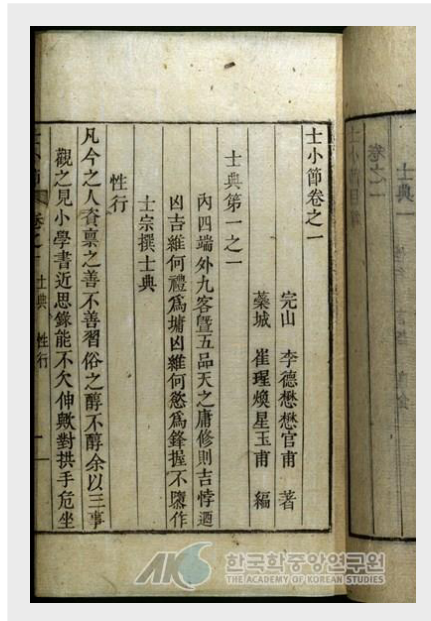 士小節卷之一
完山 李德懋懋官甫 著
蘂城 崔瑆煥星玉甫 編
士典第一之一
內四端外九容曁五品天之庸修則吉悖迺
凶吉維何禮爲墉凶維何慾爲鋒握不墮作
士宗撰士典
性行
凡今之人資稟之善不善習俗之醇不醇余以三事
觀之見小學書近思錄能不欠伸歟對拱手危坐
士小節 卷之一 士典 性行 一
AKS 한국학중앙연구원
THE ACADEMY OF KOREAN STUDIES